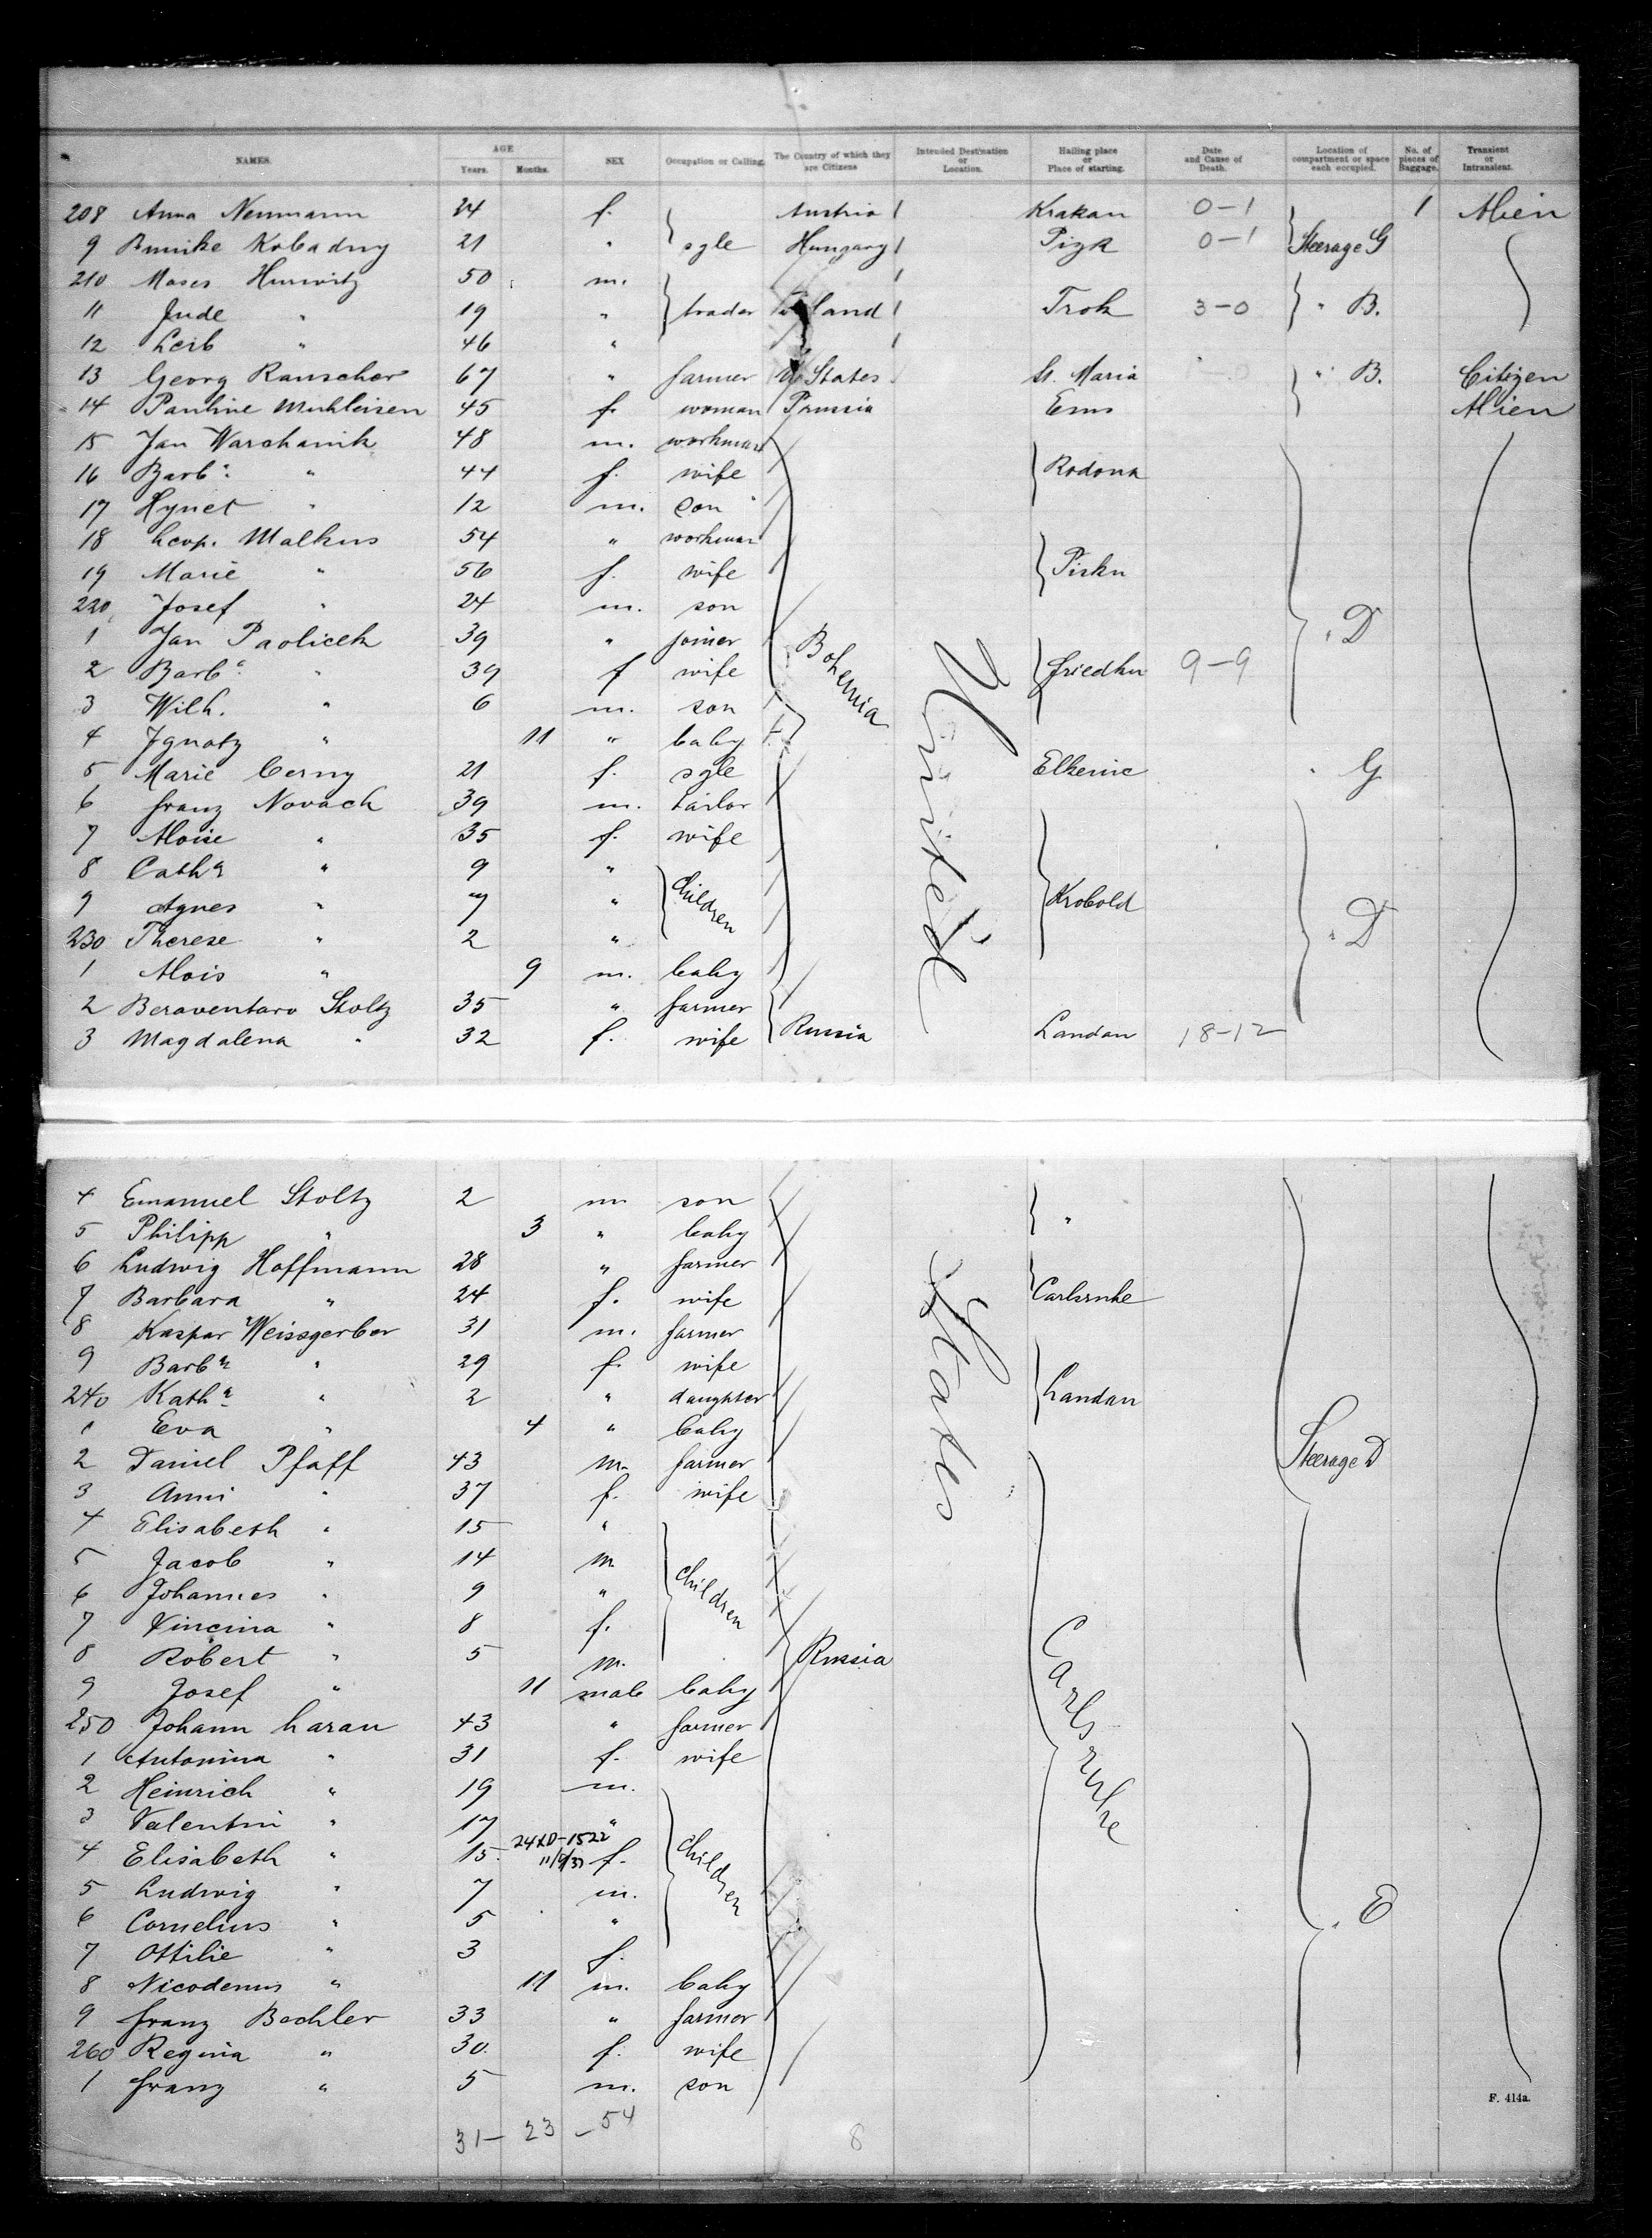 NAMES. AGE Years. Months. SEX Occupation or Calling. The Country of which they are Citizens Intended Destination or Location. Hailing place or Place of starting. Date and Cause of Death. Location of compartment or space each occupied. No. of pieces of Baggage. Transient or Intransient.
208 Anna Neumann 24 f. Austria Krakau 0-1 1 Alien
9 Kobadny 21 " sgle Hungary 0-1 Steerage G
210 Moses Hurwitz 50 m.
11 Jude " 19 " trader Trok 3-0 " B.
12 Leib " 46 "
13 Georg Rauscher 67 " farmer U States St. Maria " B. Citizen
14 Pauline Muhleisen 45 f. woman Prussia Ems Alien
15 Jan Warchanik 48 m. workman
16 Barba. " 44 f. wife Rodona
17 Hynet " 12 m. son
18 Leop. Malkus 54 " workman
19 Marie " 56 f. wife
220 Josef " 24 m. son " D
1 Jan Paolicek 39 " joiner Bohemia United
2 Barba. " 39 f wife 9-9
3 Wilh. " 6 m. son
4 Ignatz " 11 " baby
5 Marie Cerny 21 f. sgle " G
6 Franz Novack 39 m. tailor
7 Aloise " 35 f. wife
8 Catha " 9 " children
9 Agnes " 7 " Krobold
230 Therese " 2 " " D
1 Alois " 9 m. baby
2 Stoltz 35 " farmer
3 Magdalena " 32 f. wife Russia Landau 18-12
4 Emanuel Stoltz 2 m son "
5 Philipp " 3 " baby
6 Ludwig Hoffmann 28 " farmer States
7 Barbara " 24 f. wife Carlsruhe
8 Kaspar Weissgerber 31 m. farmer
9 Barba " 29 f. wife
240 Katha " 2 " daughter Landau
1 Eva " 4 " baby
2 Daniel Pfaff 43 m. farmer Steerage D
3 Anni " 37 f. wife
4 Elisabeth " 15 "
5 Jacob " 14 m children
6 Johannes " 9 "
7 Vincina " 8 f.
8 Robert " 5 m. Russia Carlsruhe
9 Josef " 11 male baby
250 Johann Laran 43 " farmer
1 Antonina " 31 f. wife
2 Heinrich " 19 m.
3 Valentin " 17 "
24XD-1522
4 Elisabeth " 15 f. children
5 Ludwig " 7 m.
6 Cornelius " 5 " " E
7 Ottilie " 3 f.
8 Nicodemus " 11 m. baby
9 Franz Bechler 33 " farmer
260 Regina " 30. f. wife
1 Franz " 5 m. son
F. 414a.
31- 23 -54
8